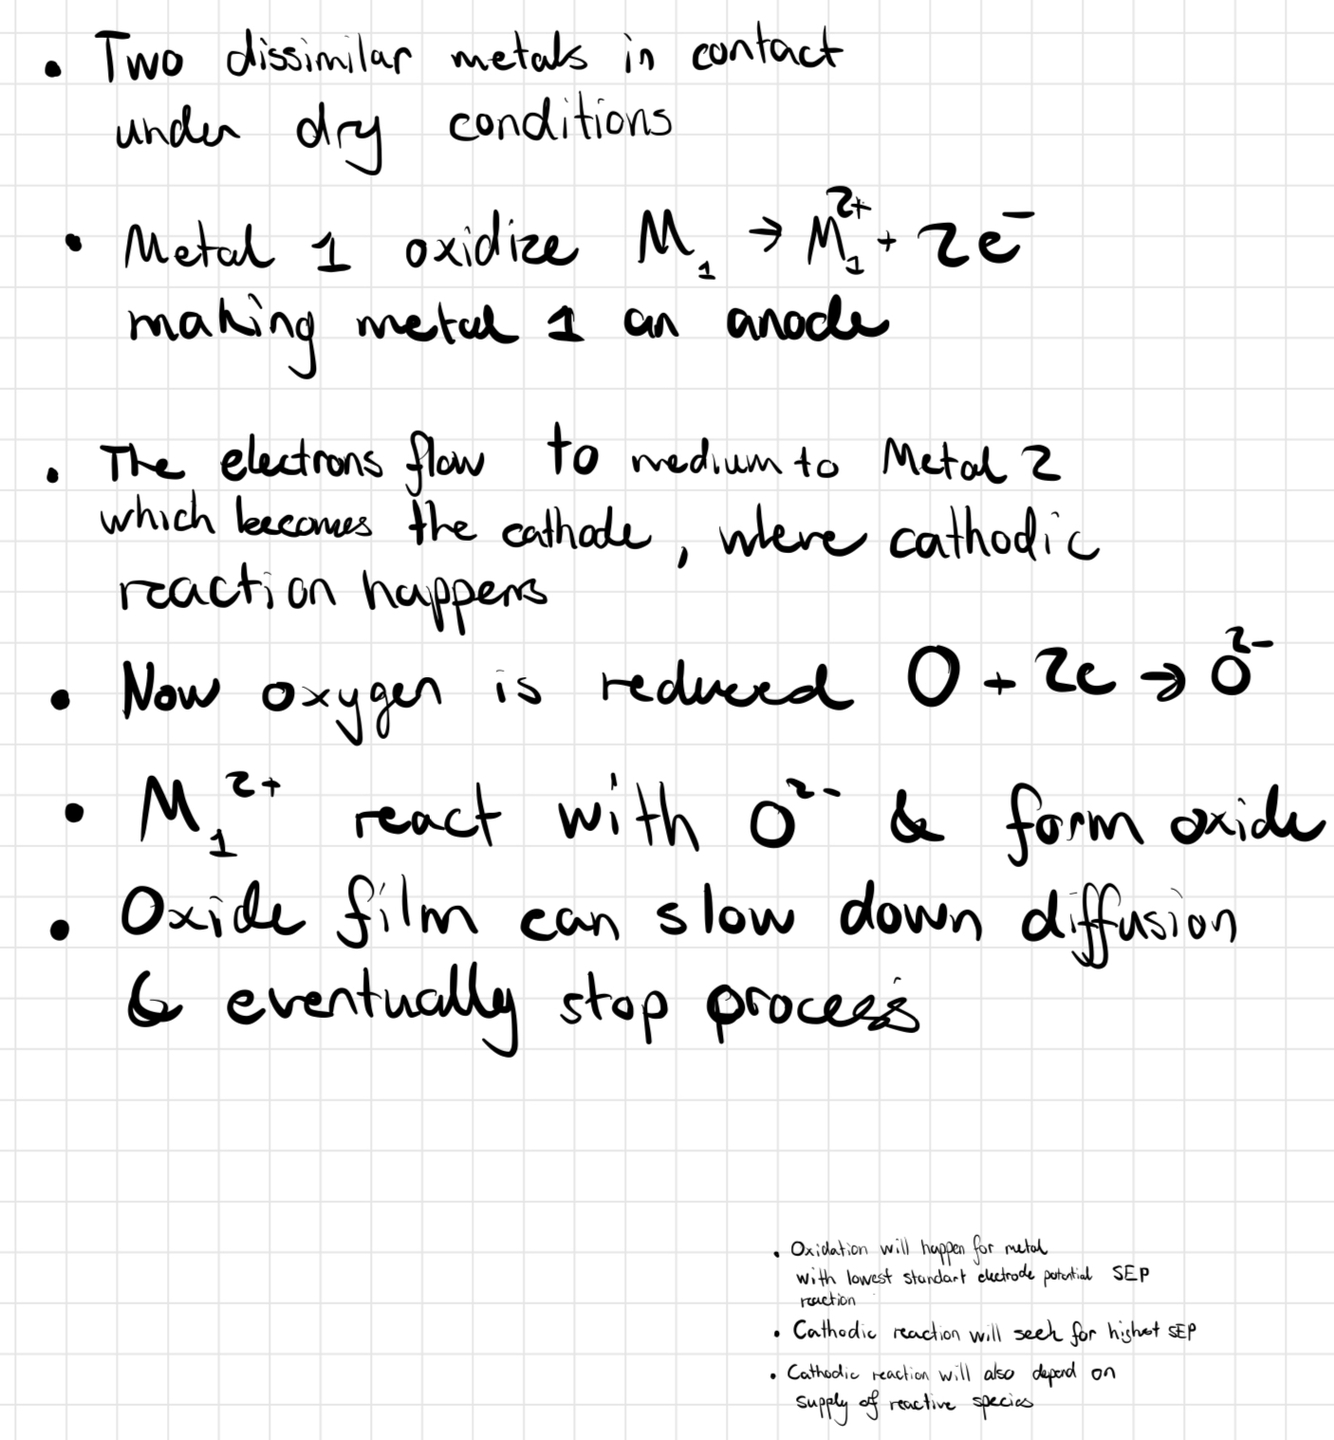 • Two dissimilar metals in contact
under dry conditions
• Metal 1 oxidize M₁ → M₁²⁺ + 2e⁻
making metal 1 an anode
• The electrons flow to medium to Metal 2
which becomes the cathode, where cathodic
reaction happens
• Now oxygen is reduced O + 2e → O²⁻
• M₁²⁺ react with O²⁻ & form oxide
• Oxide film can slow down diffusion
& eventually stop process
• Oxidation will happen for metal
with lowest standart electrode potential SEP
reaction
• Cathodic reaction will seek for highest SEP
• Cathodic reaction will also depend on
supply of reactive species